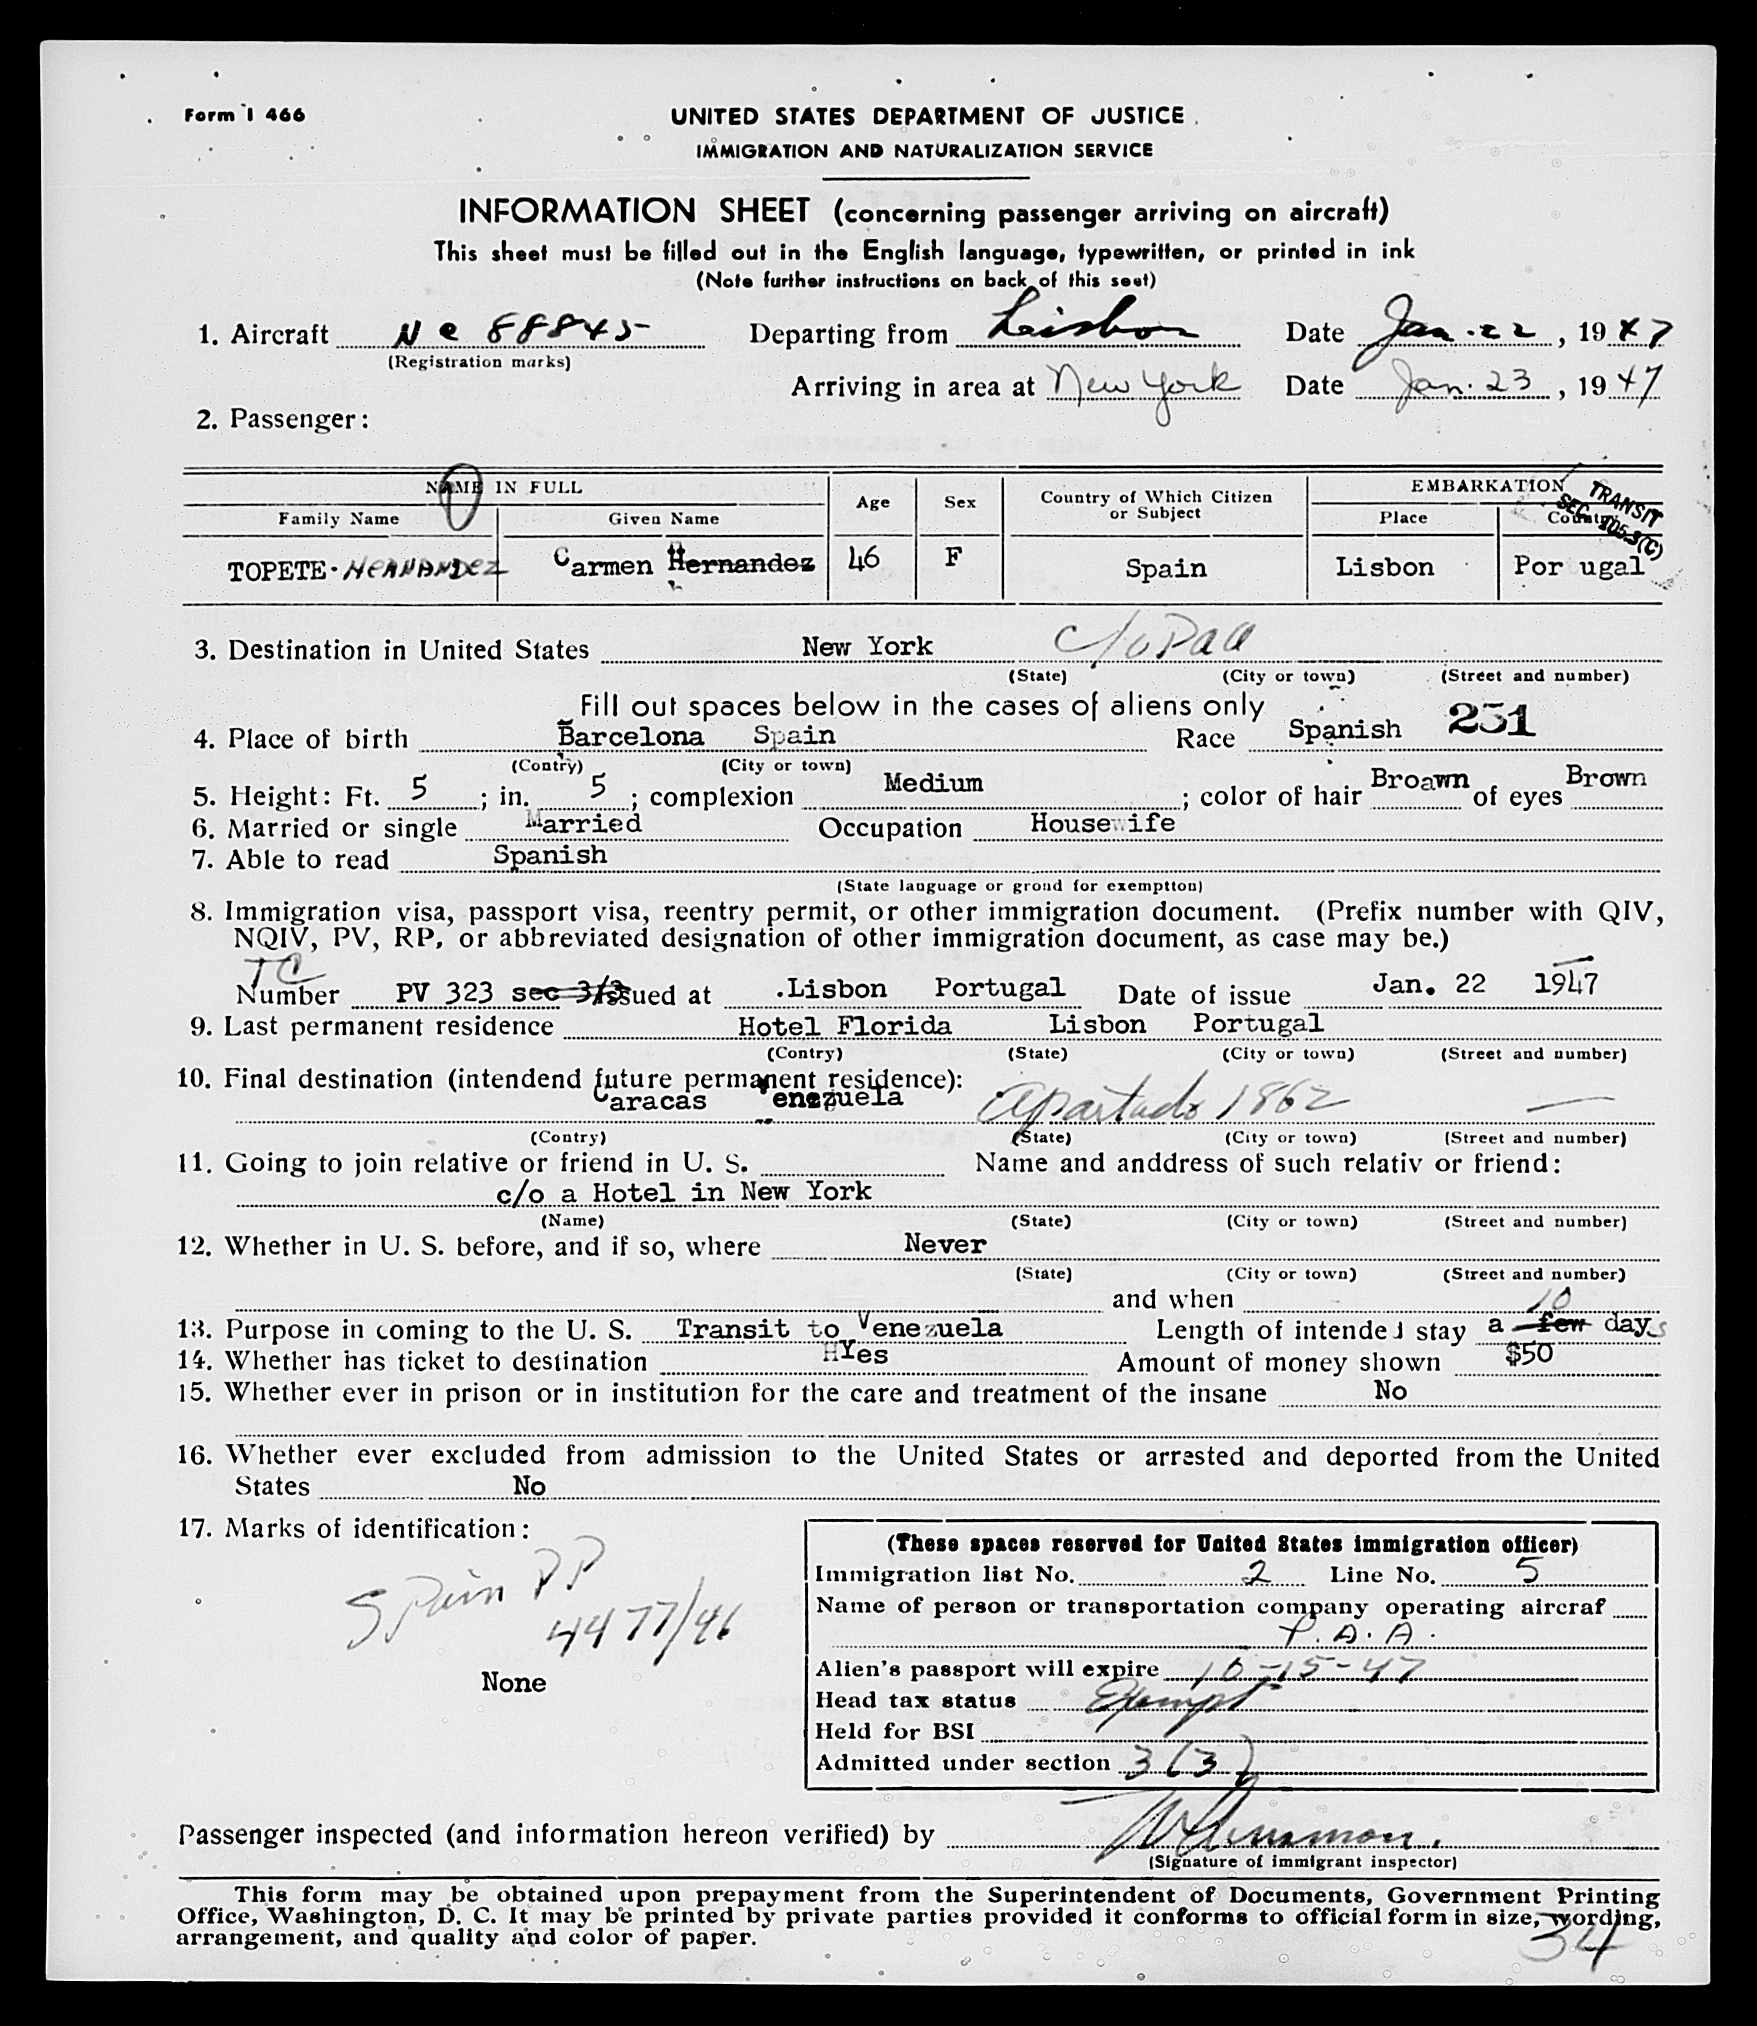 Form I 466
UNITED STATES DEPARTMENT OF JUSTICE
IMMIGRATION AND NATURALIZATION SERVICE
INFORMATION SHEET (concerning passenger arriving on aircraft)
This sheet must be filled out in the English language, typewritten, or printed in ink
(Note further instructions on back of this seet)
1. Aircraft N C 88845 Departing from Lisbon Date Jan. 22, 1947
(Registration marks)
Arriving in area at New York Date Jan. 23, 1947
2. Passenger:
NAME IN FULL Age Sex Country of Which Citizen or Subject EMBARKATION
Family Name Given Name Place Country
TRANSIT
SEC. 105.3(C)
TOPETE-HERNANDEZ Carmen Hernandez 46 F Spain Lisbon Por ugal
3. Destination in United States New York c/o Paa
(State) (City or town) (Street and number)
Fill out spaces below in the cases of aliens only
4. Place of birth Barcelona Spain Race Spanish 251
(Contry) (City or town)
5. Height: Ft. 5 ; in. 5 ; complexion Medium ; color of hair Broawn of eyes Brown
6. Married or single Married Occupation Housewife
7. Able to read Spanish
(State language or groud for exemption)
8. Immigration visa, passport visa, reentry permit, or other immigration document. (Prefix number with QIV,
NQIV, PV, RP, or abbreviated designation of other immigration document, as case may be.)
TC
Number PV 323 sec 3/3 issued at .Lisbon Portugal Date of issue Jan. 22 1947
9. Last permanent residence Hotel Florida Lisbon Portugal
(Contry) (State) (City or town) (Street and number)
10. Final destination (intendend future permanent residence):
Caracas Venezuela Apartado 1862 —
(Contry) (State) (City or town) (Street and number)
11. Going to join relative or friend in U. S. Name and anddress of such relativ or friend:
c/o a Hotel in New York
(Name) (State) (City or town) (Street and number)
12. Whether in U. S. before, and if so, where Never
(State) (City or town) (Street and number)
and when
10
13. Purpose in coming to the U. S. Transit to Venezuela Length of intended stay a few days
14. Whether has ticket to destination Yes Amount of money shown $50
15. Whether ever in prison or in institution for the care and treatment of the insane No
16. Whether ever excluded from admission to the United States or arrested and deported from the United
States No
17. Marks of identification:
Spain PP
4477/46
None
(These spaces reserved for United States immigration officer)
Immigration list No. 2 Line No. 5
Name of person or transportation company operating aircraf
P.A.A.
Alien's passport will expire 10-15-47
Head tax status Exempt
Held for BSI
Admitted under section 3(3)
Passenger inspected (and information hereon verified) by
(Signature of immigrant inspector)
This form may be obtained upon prepayment from the Superintendent of Documents, Government Printing
Office, Washington, D. C. It may be printed by private parties provided it conforms to official form in size, wording,
arrangement, and quality and color of paper.
34